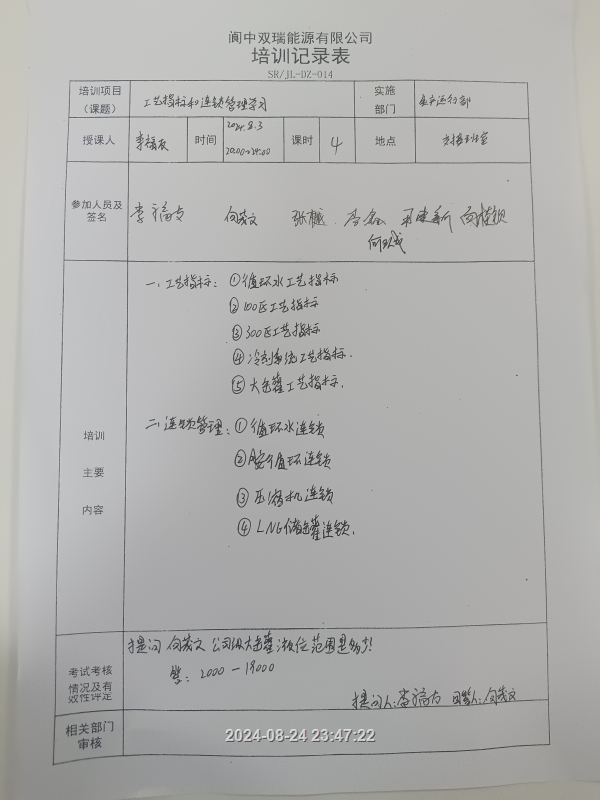 阆中双瑞能源有限公司
培训记录表
SR/JL-DZ-014
培训项目（课题） 工艺指标和连锁管理学习 实施部门 生产运行部
授课人 时间 2024.8.3 20:00-24:00 课时 4 地点
参加人员及签名 张樾
培训主要内容
一、工艺指标：①循环水工艺指标
②100区工艺指标
③300区工艺指标
④冷剂系统工艺指标.
⑤大储罐工艺指标.
二、连锁管理：①循环水连锁
②胺循环连锁
③压缩机连锁
④LNG储罐连锁.
考试考核情况及有效性评定
提问 公司LNG大储罐液位范围是多少!
答：2000-18000
提问人： 回答人：
相关部门审核
2024-08-24 23:47:22